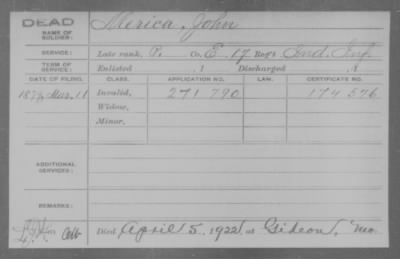 DEAD
NAME OF SOLDIER: Merica, John
SERVICE: Late rank, P. Co. E. 17 Reg't Ind. Inf.
TERM OF SERVICE: Enlisted , 1 Discharged , 1
DATE OF FILING. CLASS. APPLICATION NO. LAW. CERTIFICATE NO.
Mar. 11 Invalid, 271 790 174 576
Widow,
Minor,
ADDITIONAL SERVICES:
REMARKS:
Died April 5, 1922, at Gideon, Mo